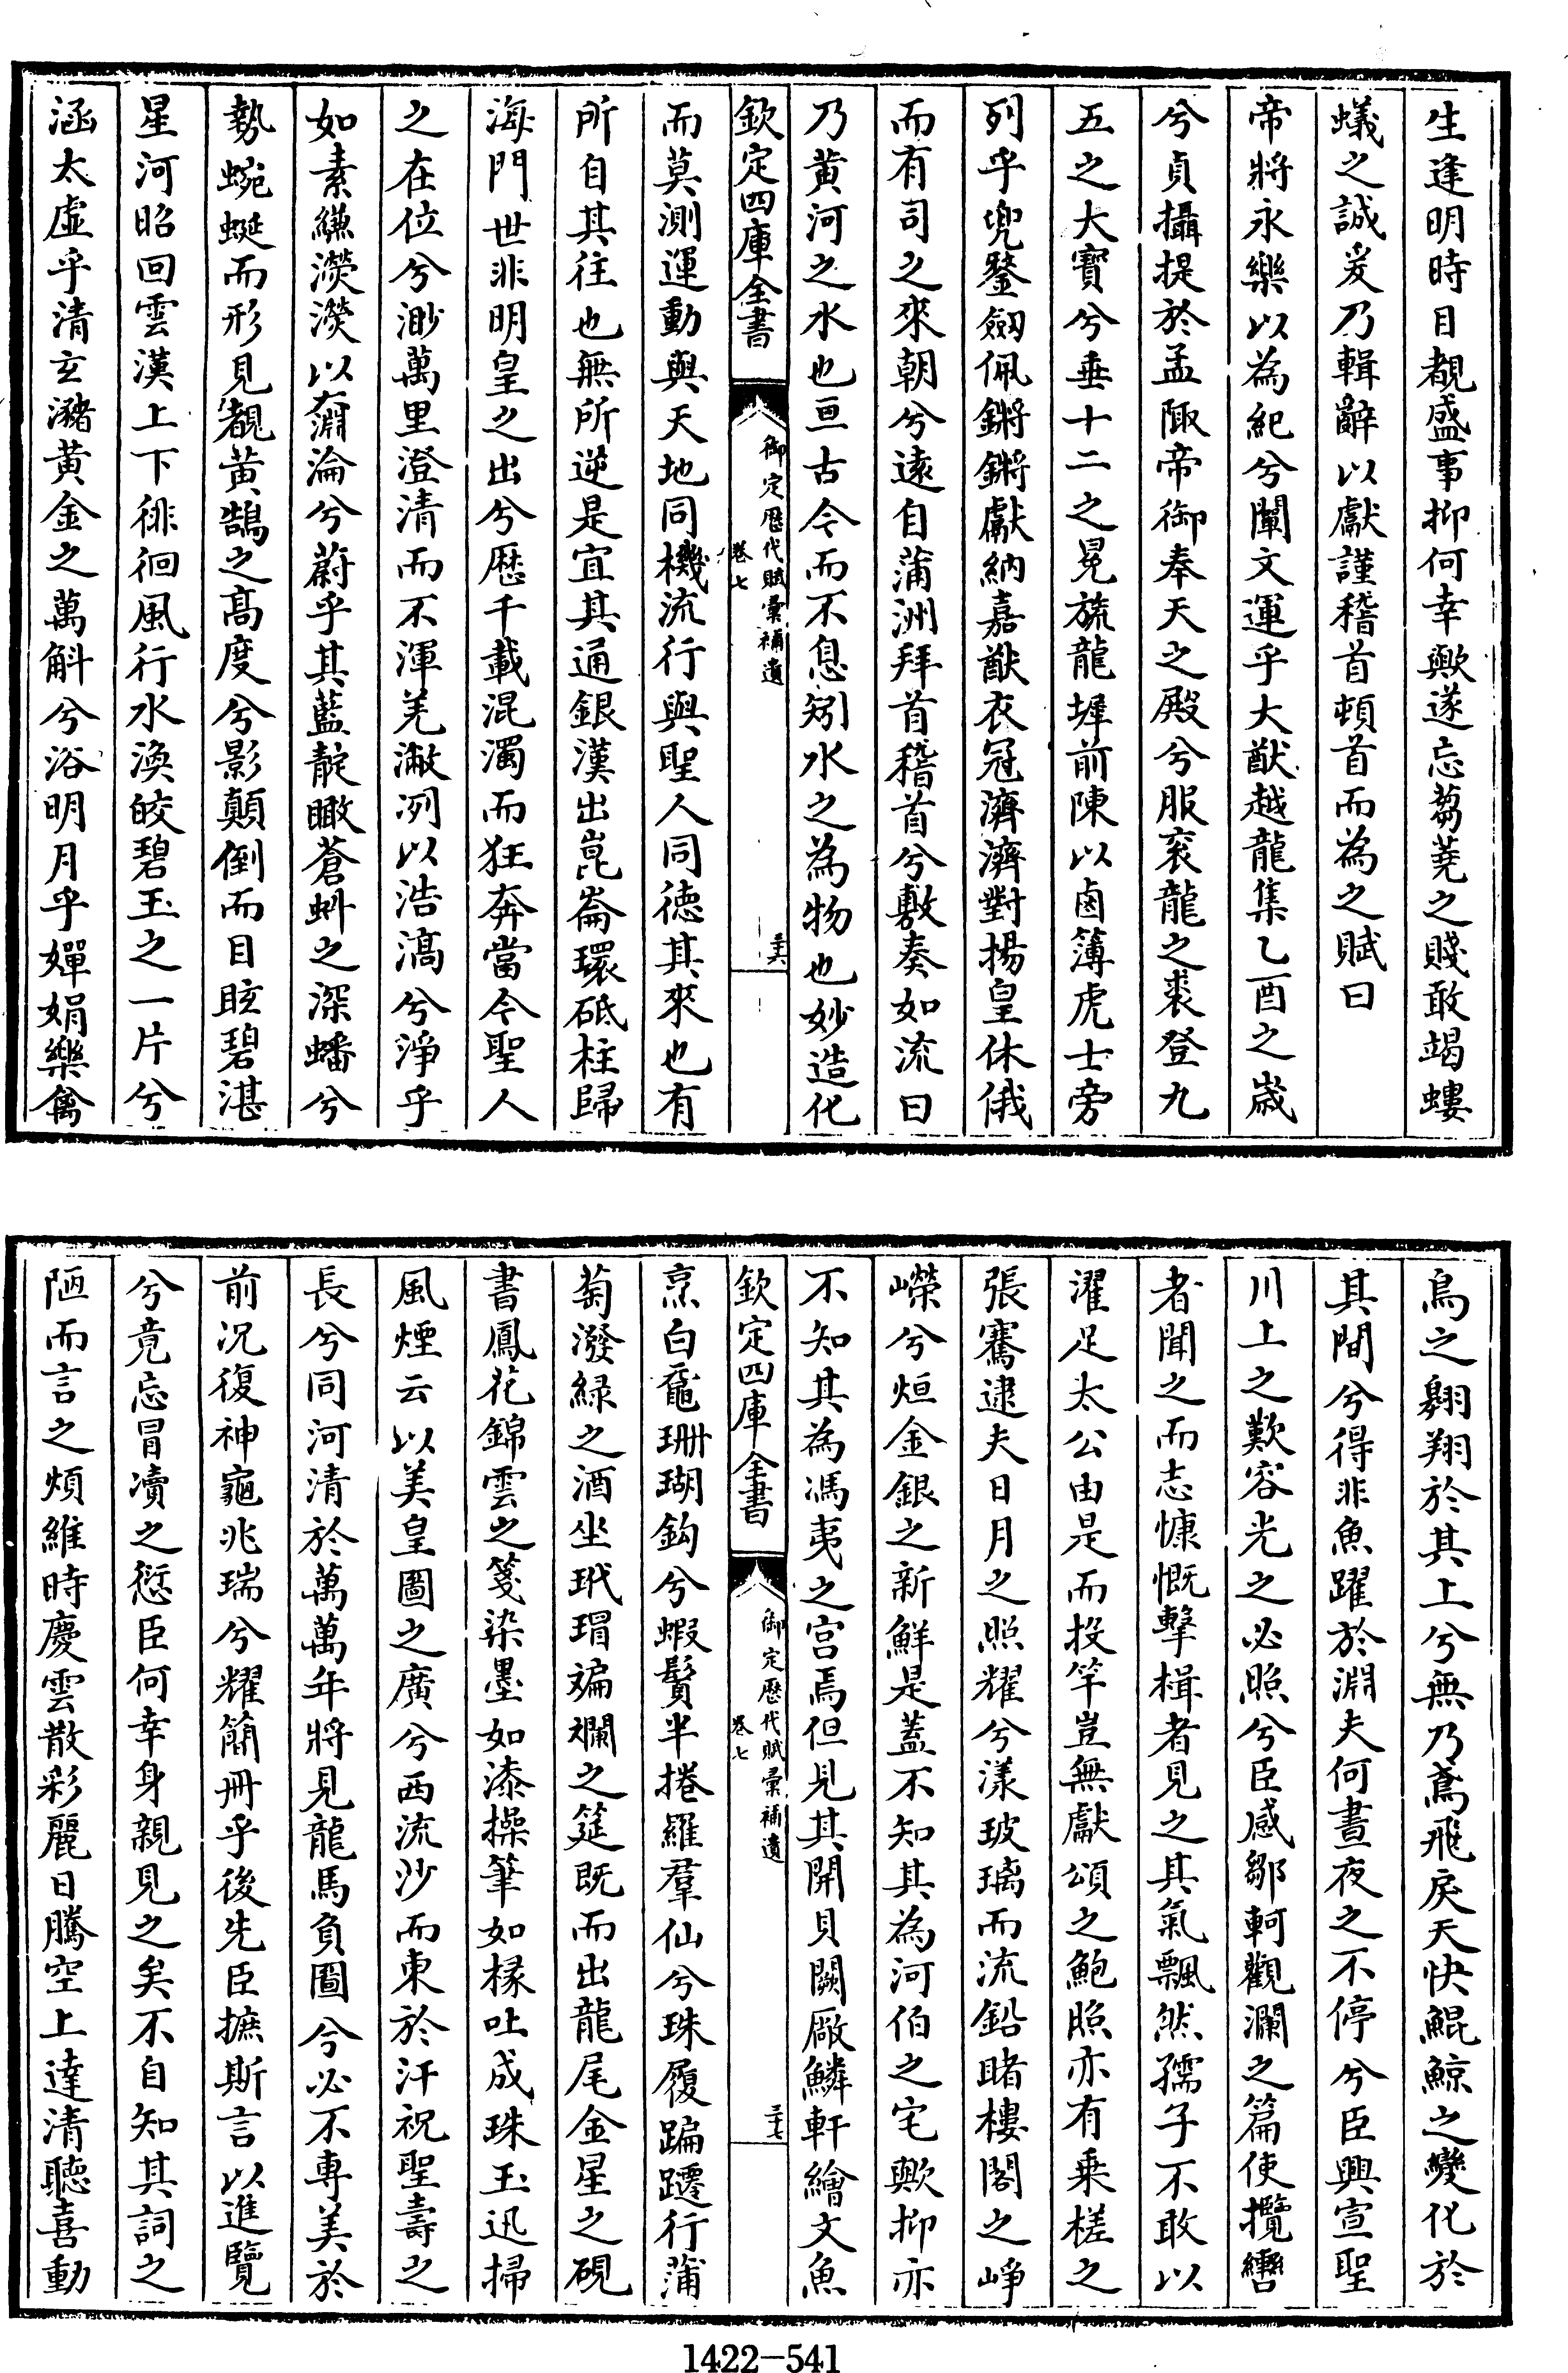 生逢明時目覩盛事抑何幸歟遂忘芻蕘之賤敢竭螻
蟻之誠爰乃輯辭以獻謹稽首頓首而為之賦曰
帝將永樂以為紀兮闡文運乎大猷越龍集乙酉之歳
兮貞攝提於孟陬帝御奉天之殿兮服衮龍之裘登九
五之大寶兮垂十二之冕旒龍墀前陳以鹵簿虎士旁
列乎兜鍪劔佩鏘鏘獻納嘉猷衣冠濟濟對揚皇休俄
而有司之來朝兮遠自蒲洲拜首稽首兮敷奏如流曰
乃黄河之水也亘古今而不息矧水之為物也妙造化
欽定四庫全書
御定歴代賦彙補遺
卷七
三十六
而莫測運動與天地同機流行與聖人同徳其來也有
所自其往也無所逆是宜其通銀漢出崑崙環砥柱歸
海門世非明皇之出兮歴千載混濁而狂奔當今聖人
之在位兮渺萬里澄清而不渾羌潎洌以浩滈兮淨乎
如素縑濙濙以奫淪兮蔚乎其藍靛瞰蒼虯之深蟠兮
勢蜿蜒而形見覩黄鵠之髙度兮影顛倒而目眩碧湛
星河昭回雲漢上下徘徊風行水渙皎碧玉之一片兮
涵太虛乎清玄瀦黄金之萬斛兮浴明月乎嬋娟樂禽
鳥之翺翔於其上兮無乃鳶飛戾天快鯤鯨之變化於
其間兮得非魚躍於淵夫何晝夜之不停兮臣興宣聖
川上之歎容光之必照兮臣感鄒軻觀瀾之篇使攬轡
者聞之而志慷慨擊楫者見之其氣飄然孺子不敢以
濯足太公由是而投竿豈無獻頌之鮑照亦有乗槎之
張騫逮夫日月之照耀兮漾玻璃而流鉛睹樓閣之崢
嶸兮烜金銀之新鮮是蓋不知其為河伯之宅歟抑亦
不知其為馮夷之宫焉但見其開貝闕厰鱗軒繪文魚
欽定四庫全書
御定歴代賦彙補遺
卷七
三十七
烹白黿珊瑚鈎兮蝦鬚半捲羅羣仙兮珠履蹁躚行蒲
萄潑緑之酒坐玳瑁斒斕之筵既而出龍尾金星之硯
書鳳花錦雲之箋染墨如漆操筆如椽吐成珠玉迅掃
風煙云以美皇圖之廣兮西流沙而東於汗祝聖壽之
長兮同河清於萬萬年將見龍馬負圖兮必不専美於
前况復神龜兆瑞兮耀簡冊乎後先臣摭斯言以進覽
兮竟忘冒瀆之愆臣何幸身親見之矣不自知其詞之
陋而言之煩維時慶雲散彩麗日騰空上達清聽喜動
1422-541